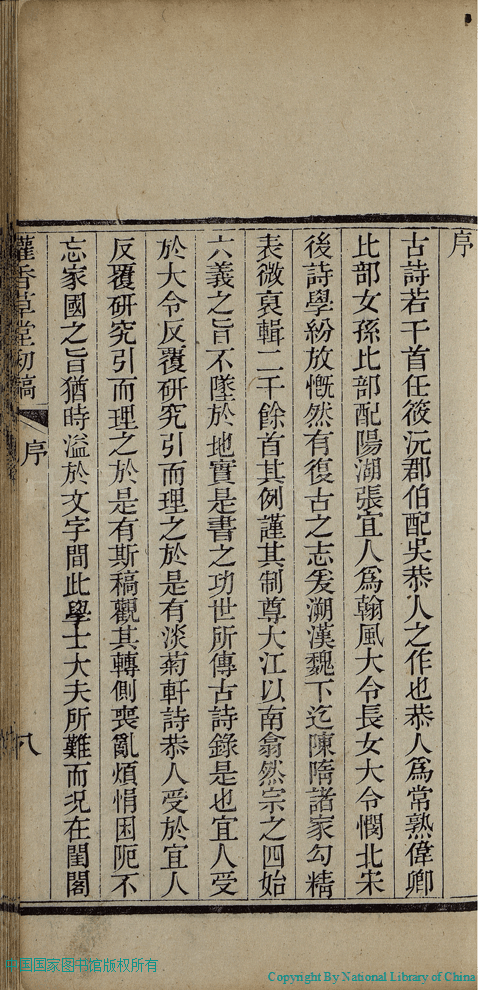 序
古詩若干首任筱沅郡伯配吳恭人之作也恭人爲常熟偉卿
比部女孫比部配陽湖張宜人爲翰風大令長女大令憫北宋
後詩學紛放慨然有復古之志爰溯漢魏下迄陳隋諸家勾精
表微裒輯二千餘首其例謹其制尊大江以南翕然宗之四始
六義之旨不墜於地實是書之功世所傳古詩錄是也宜人受
於大令反覆研究引而理之於是有淡菊軒詩恭人受於宜人
反覆研究引而理之於是有斯稿觀其轉側喪亂煩悁困阨不
忘家國之旨猶時溢於文字間此學士大夫所難而況在閨閣
香草堂初稿
序
八
中国国家图书馆版权所有
Copyright By National Library of China